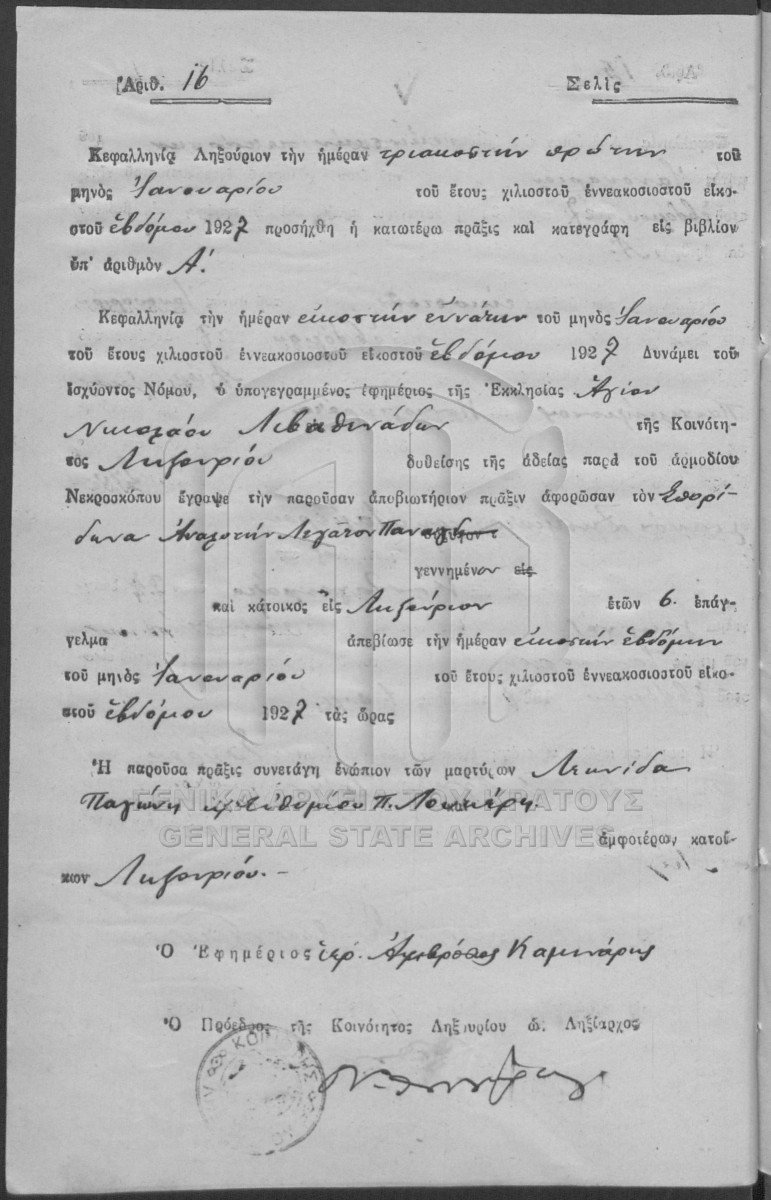 Ἀριθ. 16 Σελὶς
Κεφαλληνίᾳ Ληξούριον τὴν ἡμέραν τριακοστήν πρώτην τοῦ
μηνὸς Ἰανουαρίου τοῦ ἔτους χιλιοστοῦ ἐννεακοσιοστοῦ εἰκο-
στοῦ ἑβδόμου 1927 προσήχθη ἡ κατωτέρω πρᾶξις καὶ κατεγράφη εἰς βιβλίον
ὑπ' ἀριθμὸν Α!
Κεφαλληνίᾳ τὴν ἡμέραν εἰκοστήν ἐννάτην τοῦ μηνὸς Ἰανουαρίου
τοῦ ἔτους χιλιοστοῦ ἐννεακοσιοστοῦ εἰκοστοῦ ἑβδόμου 1927 Δυνάμει τοῦ
ἰσχύοντος Νόμου, ὁ ὑπογεγραμμένος ἐφημέριος τῆς Ἐκκλησίας Ἁγίου
Νικολάου Λιβαθινάδων τῆς Κοινότη-
τος Ληξουρίου δοθείσης τῆς ἀδείας παρὰ τοῦ ἁρμοδίου
Νεκροσκόπου ἔγραψε τὴν παροῦσαν ἀποβιωτήριον πρᾶξιν ἀφορῶσαν τὸν Σπυρί-
δωνα
γεννημένον εἰς
καὶ κάτοικος εἰς Ληξούριον ἐτῶν 6. ἐπάγ-
γελμα ἀπεβίωσε τὴν ἡμέραν εἰκοστήν ἑβδόμην
τοῦ μηνὸς Ἰανουαρίου τοῦ ἔτους χιλιοστοῦ ἐννεακοσιοστοῦ εἰκο-
στοῦ ἑβδόμου 1927 τὰς ὥρας
Ἡ παροῦσα πρᾶξις συνετάγη ἐνώπιον τῶν μαρτύρων Λεωνίδα
Παγώνη
ΓΕΝΙΚΑ ΑΡΧΕΙΑ ΤΟΥ ΚΡΑΤΟΥΣ
GENERAL STATE ARCHIVES
ἀμφοτέρων κατοί-
κων Ληξουρίου.-
Ὁ Ἐφημέριος ἱερ. Ἀμβρόσιος Καμινάρης
Ὁ Πρόεδρος τῆς Κοινότητος Ληξουρίου ὡ. Ληξίαρχος